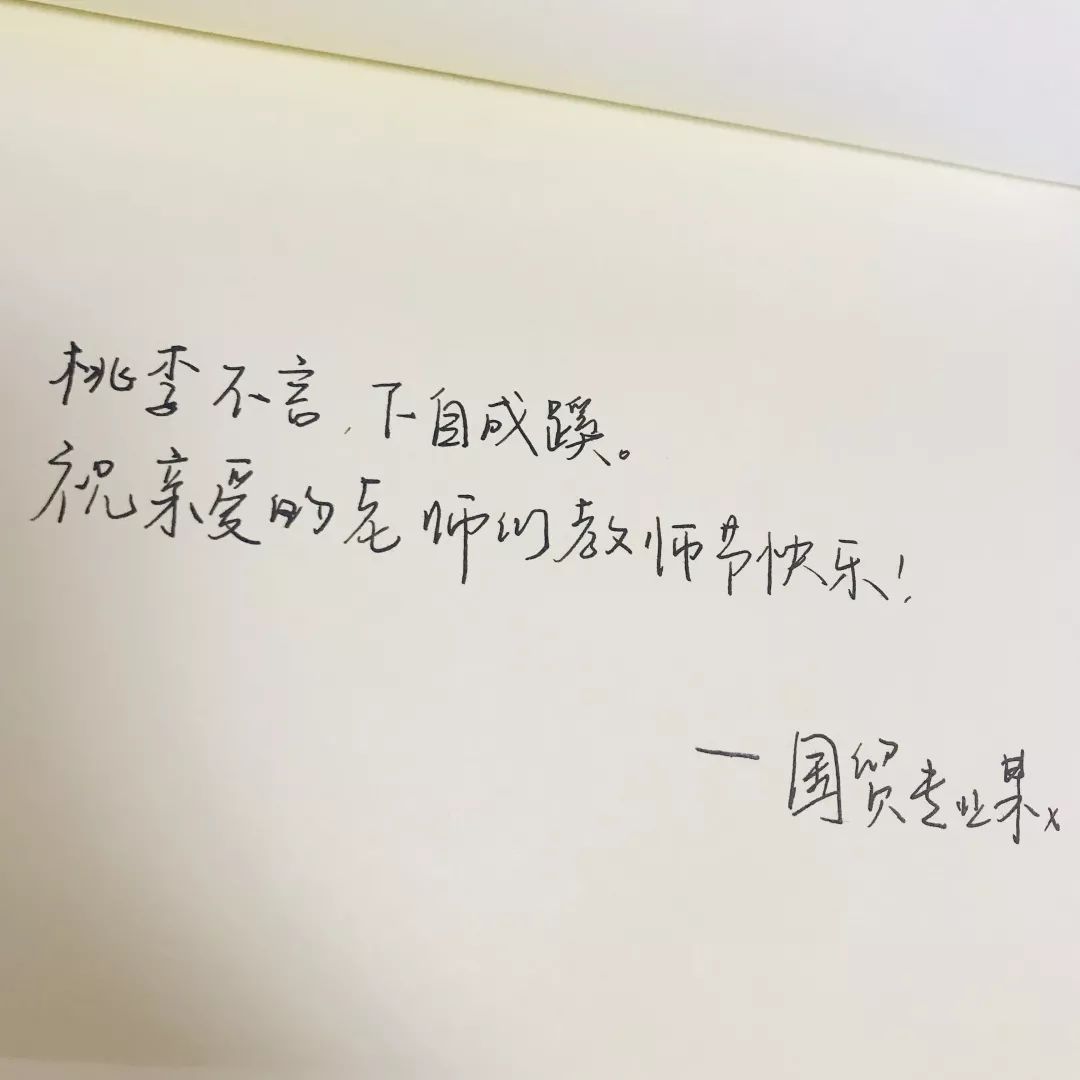 桃李不言,下自成蹊。
祝亲爱的老师们教师节快乐!
—国贸专业某x